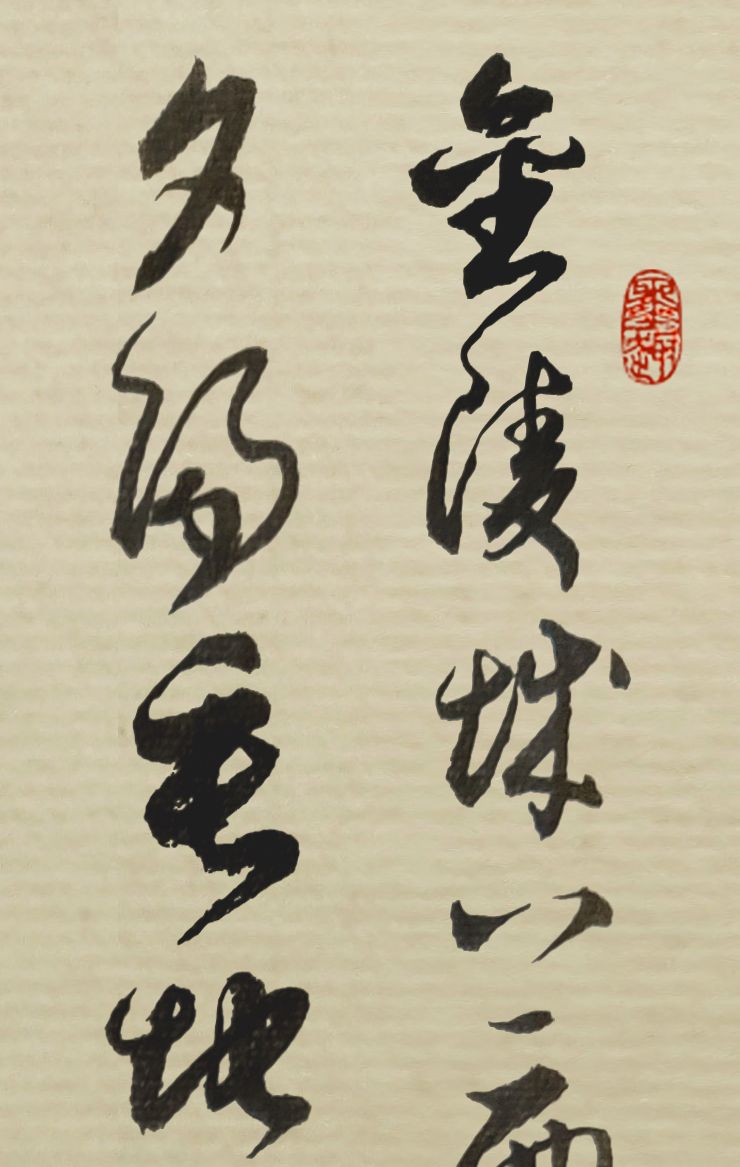 金陵城上西
夕陽垂地